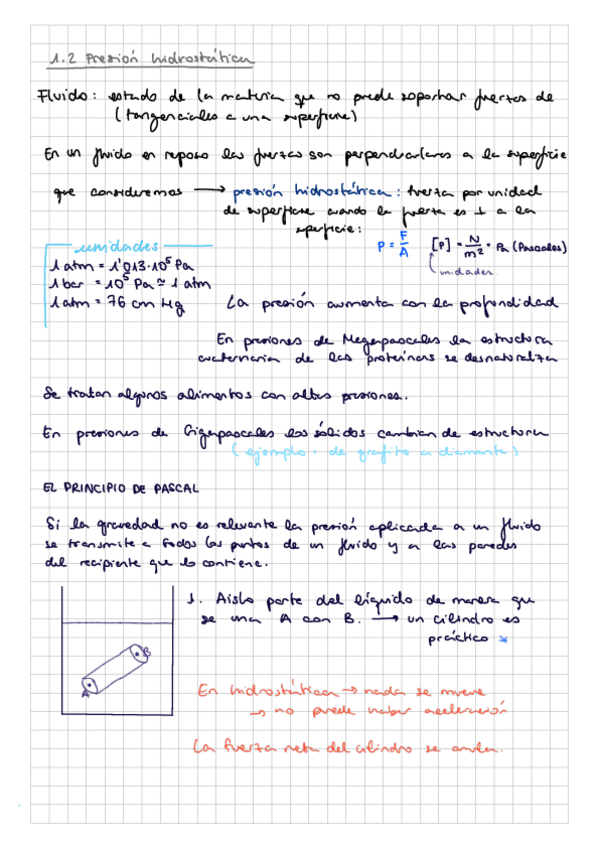 1.2 Presión hidrostática
Fluido: estado de la materia que no puede soportar fuerzas de
(tangenciales a una superficie)
En un fluido en reposo las fuerzas son perpendiculares a la superficie
que consideremos → presión hidrostática: fuerza por unidad
de superficie cuando la fuerza es ⊥ a la
superficie:
P = F/A [P] = N/m² = Pa (Pascales)
unidades
unidades
1 atm = 1'013·10⁵ Pa
1 bar = 10⁵ Pa ≃ 1 atm
1 atm = 76 cm Hg
La presión aumenta con la profundidad
En presiones de Megapascales la estructura
cuaternaria de las proteínas se desnaturaliza
Se tratan algunos alimentos con altas presiones.
En presiones de Gigapascales los sólidos cambian de estructura
(ejemplo: de grafito a diamante)
EL PRINCIPIO DE PASCAL
Si la gravedad no es relevante la presión aplicada a un fluido
se transmite a todos los puntos de un fluido y a las paredes
del recipiente que lo contiene.
1. Aislo parte del líquido de manera que
se una A con B. → un cilindro es
práctico *
B
A
En hidrostática → nada se mueve
→ no puede haber aceleración
La fuerza neta del cilindro se anula.